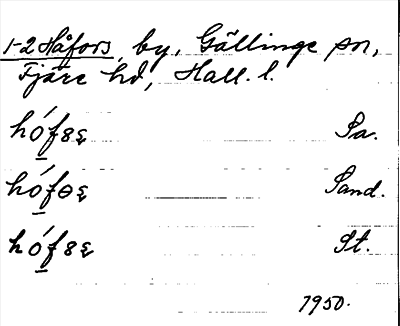 1-2 Håfors, by, Gällinge sn,
Fjäre hd, Hall. l.
hó̱fsę Pa.
hó̱fɵę Sand.
hó̱fsę St.
1950.